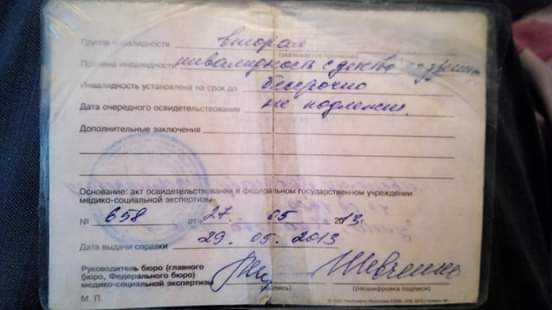 Группа инвалидности вторая
Причина инвалидности инвалидность с детства по зрению
Инвалидность установлена на срок до бессрочно
Дата очередного освидетельствования не подлежит.
Дополнительные заключения
Основание: акт освидетельствования в федеральном государственном учреждении
медико-социальной экспертизы
№ 658 от 27. 05 2013г.
Дата выдачи справки 29. 05. 2013
Руководитель бюро (главного
бюро, Федерального бюро)
медико-социальной экспертизы Шевченко
(подпись) (расшифровка подписи)
М. П.